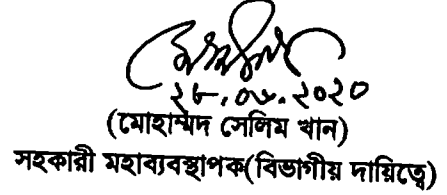 ২৮.০৬.২০২০
(মোহাম্মদ সেলিম খান)
সহকারী মহাব্যবস্থাপক(বিভাগীয় দায়িত্বে)